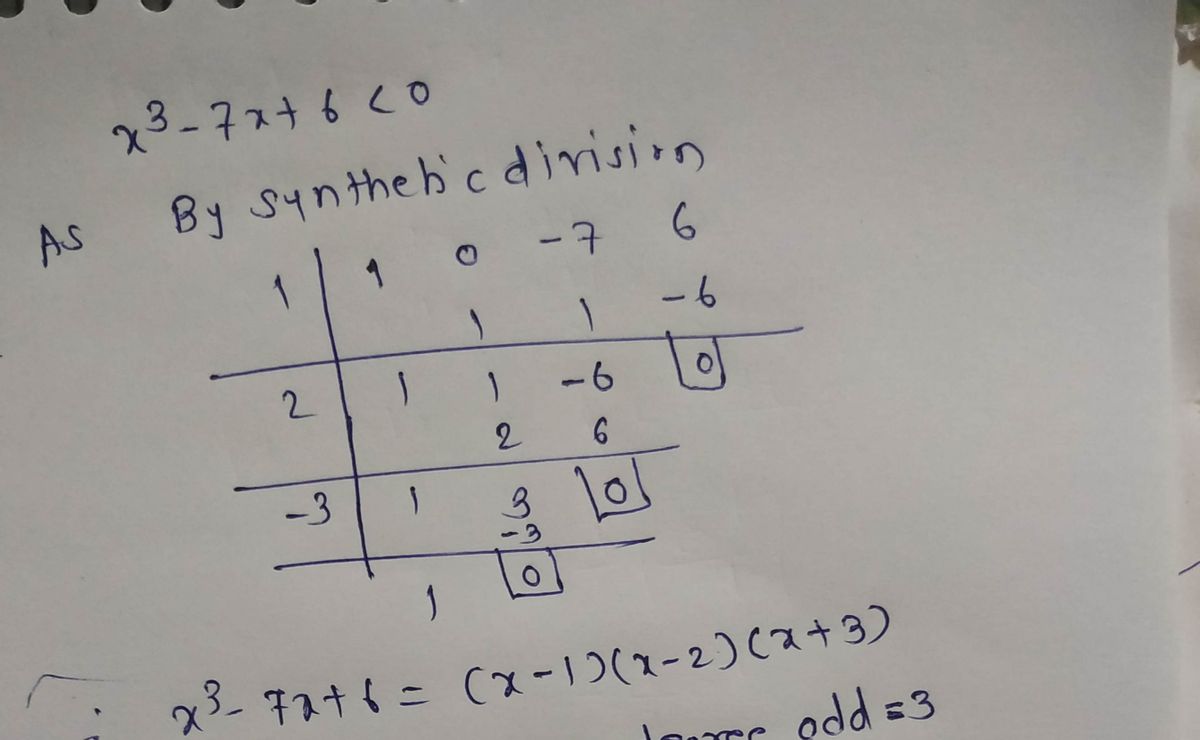 x³-7x+6<0
As By synthetic division
1 | 1 0 -7 6
1 1 -6
2 | 1 1 -6 0
2 6
-3 | 1 3 0
-3
1 0
x³-7x+6 = (x-1)(x-2)(x+3)
odd=3